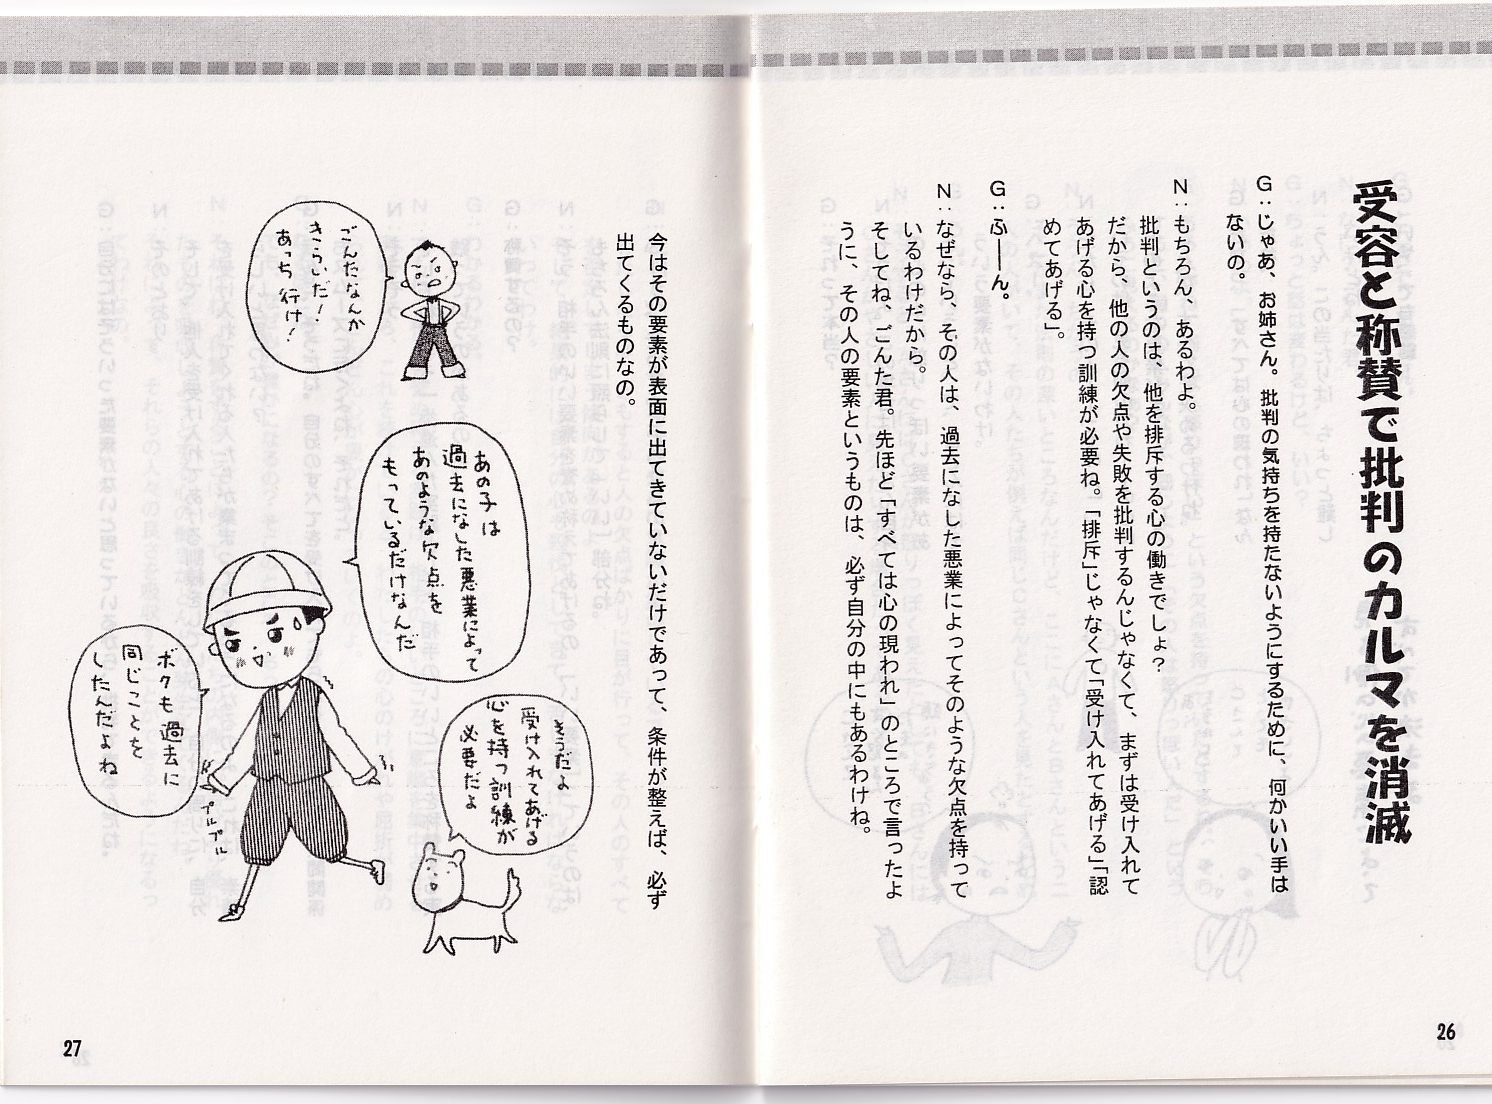 受容と称賛で批判のカルマを消滅
G：じゃあ、お姉さん。批判の気持ちを持たないようにするために、何かいい手は
ないの。
N：もちろん、あるわよ。
批判というのは、他を排斥する心の働きでしょ？
だから、他の人の欠点や失敗を批判するんじゃなくて、まずは受け入れて
あげる心を持つ訓練が必要ね。「排斥」じゃなくて「受け入れてあげる」「認
めてあげる」。
G：ふーん。
N：なぜなら、その人は、過去になした悪業によってそのような欠点を持って
いるわけだから。
そしてね、ごんた君。先ほど「すべては心の現われ」のところで言ったよ
うに、その人の要素というものは、必ず自分の中にもあるわけね。
26
今はその要素が表面に出てきていないだけであって、条件が整えば、必ず
出てくるものなの。
ごんたなんか
きらいだ！
あっち行け！
あの子は
過去になした悪業によって
あのような欠点を
もっているだけなんだ
そうだよ
受け入れてあげる
心を持つ訓練が
必要だよ
ボクも過去に
同じことを
したんだよね
プルプル
27